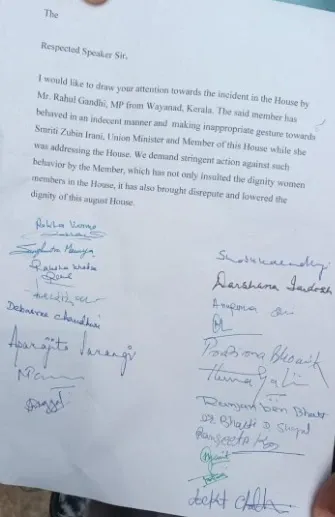 The
Respected Speaker Sir,
I would like to draw your attention towards the incident in the House by
Mr. Rahul Gandhi, MP from Wayanad, Kerala. The said member has
behaved in an indecent manner and making inappropriate gesture towards
Smriti Zubin Irani, Union Minister and Member of this House while she
was addressing the House. We demand stringent action against such
behavior by the Member, which has not only insulted the dignity women
members in the House, it has also brought disrepute and lowered the
dignity of this august House.
Rekha Verma
Sanghmitra Maurya
Debasree Chaudhuri
Aparajita Sarangi
Darshana Jardosh
Annpurna
Pratima Bhoumik
Ranjan ben Bhatt
Dr Bharti D. Shyal